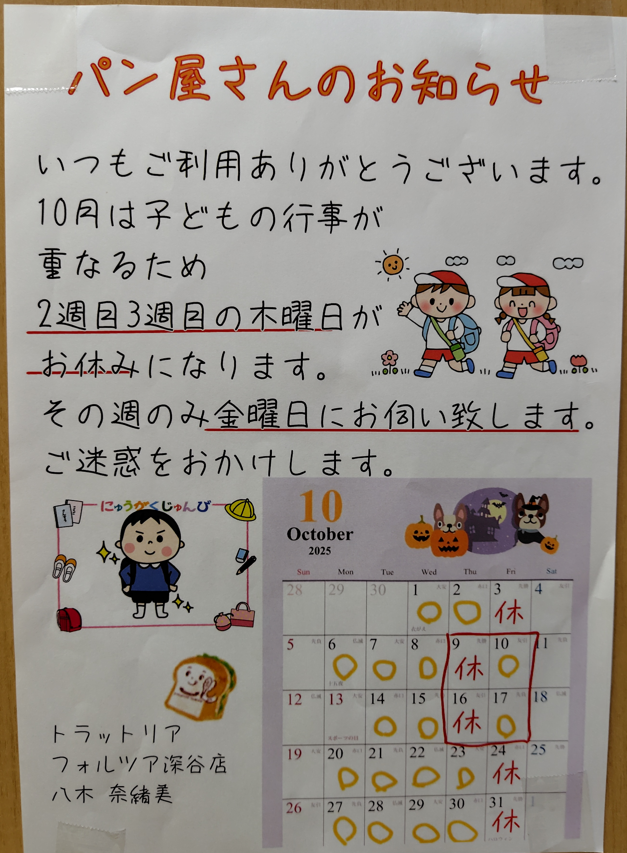 パン屋さんのお知らせ
いつもご利用ありがとうございます。
10月は子どもの行事が
重なるため
2週目3週目の木曜日が
お休みになります。
その週のみ金曜日にお伺い致します。
ご迷惑をおかけします。
にゅうがくじゅんび
トラットリア
フォルツア深谷店
八木 奈緒美
10
October
2025
Sun Mon Tue Wed Thu Fri Sat
28 29 30 1 2 3 4
休
5 6 7 8 9 10 11
休
12 13 14 15 16 17 18
スポーツの日
休
19 20 21 22 23 24 25
休
26 27 28 29 30 31 1
休